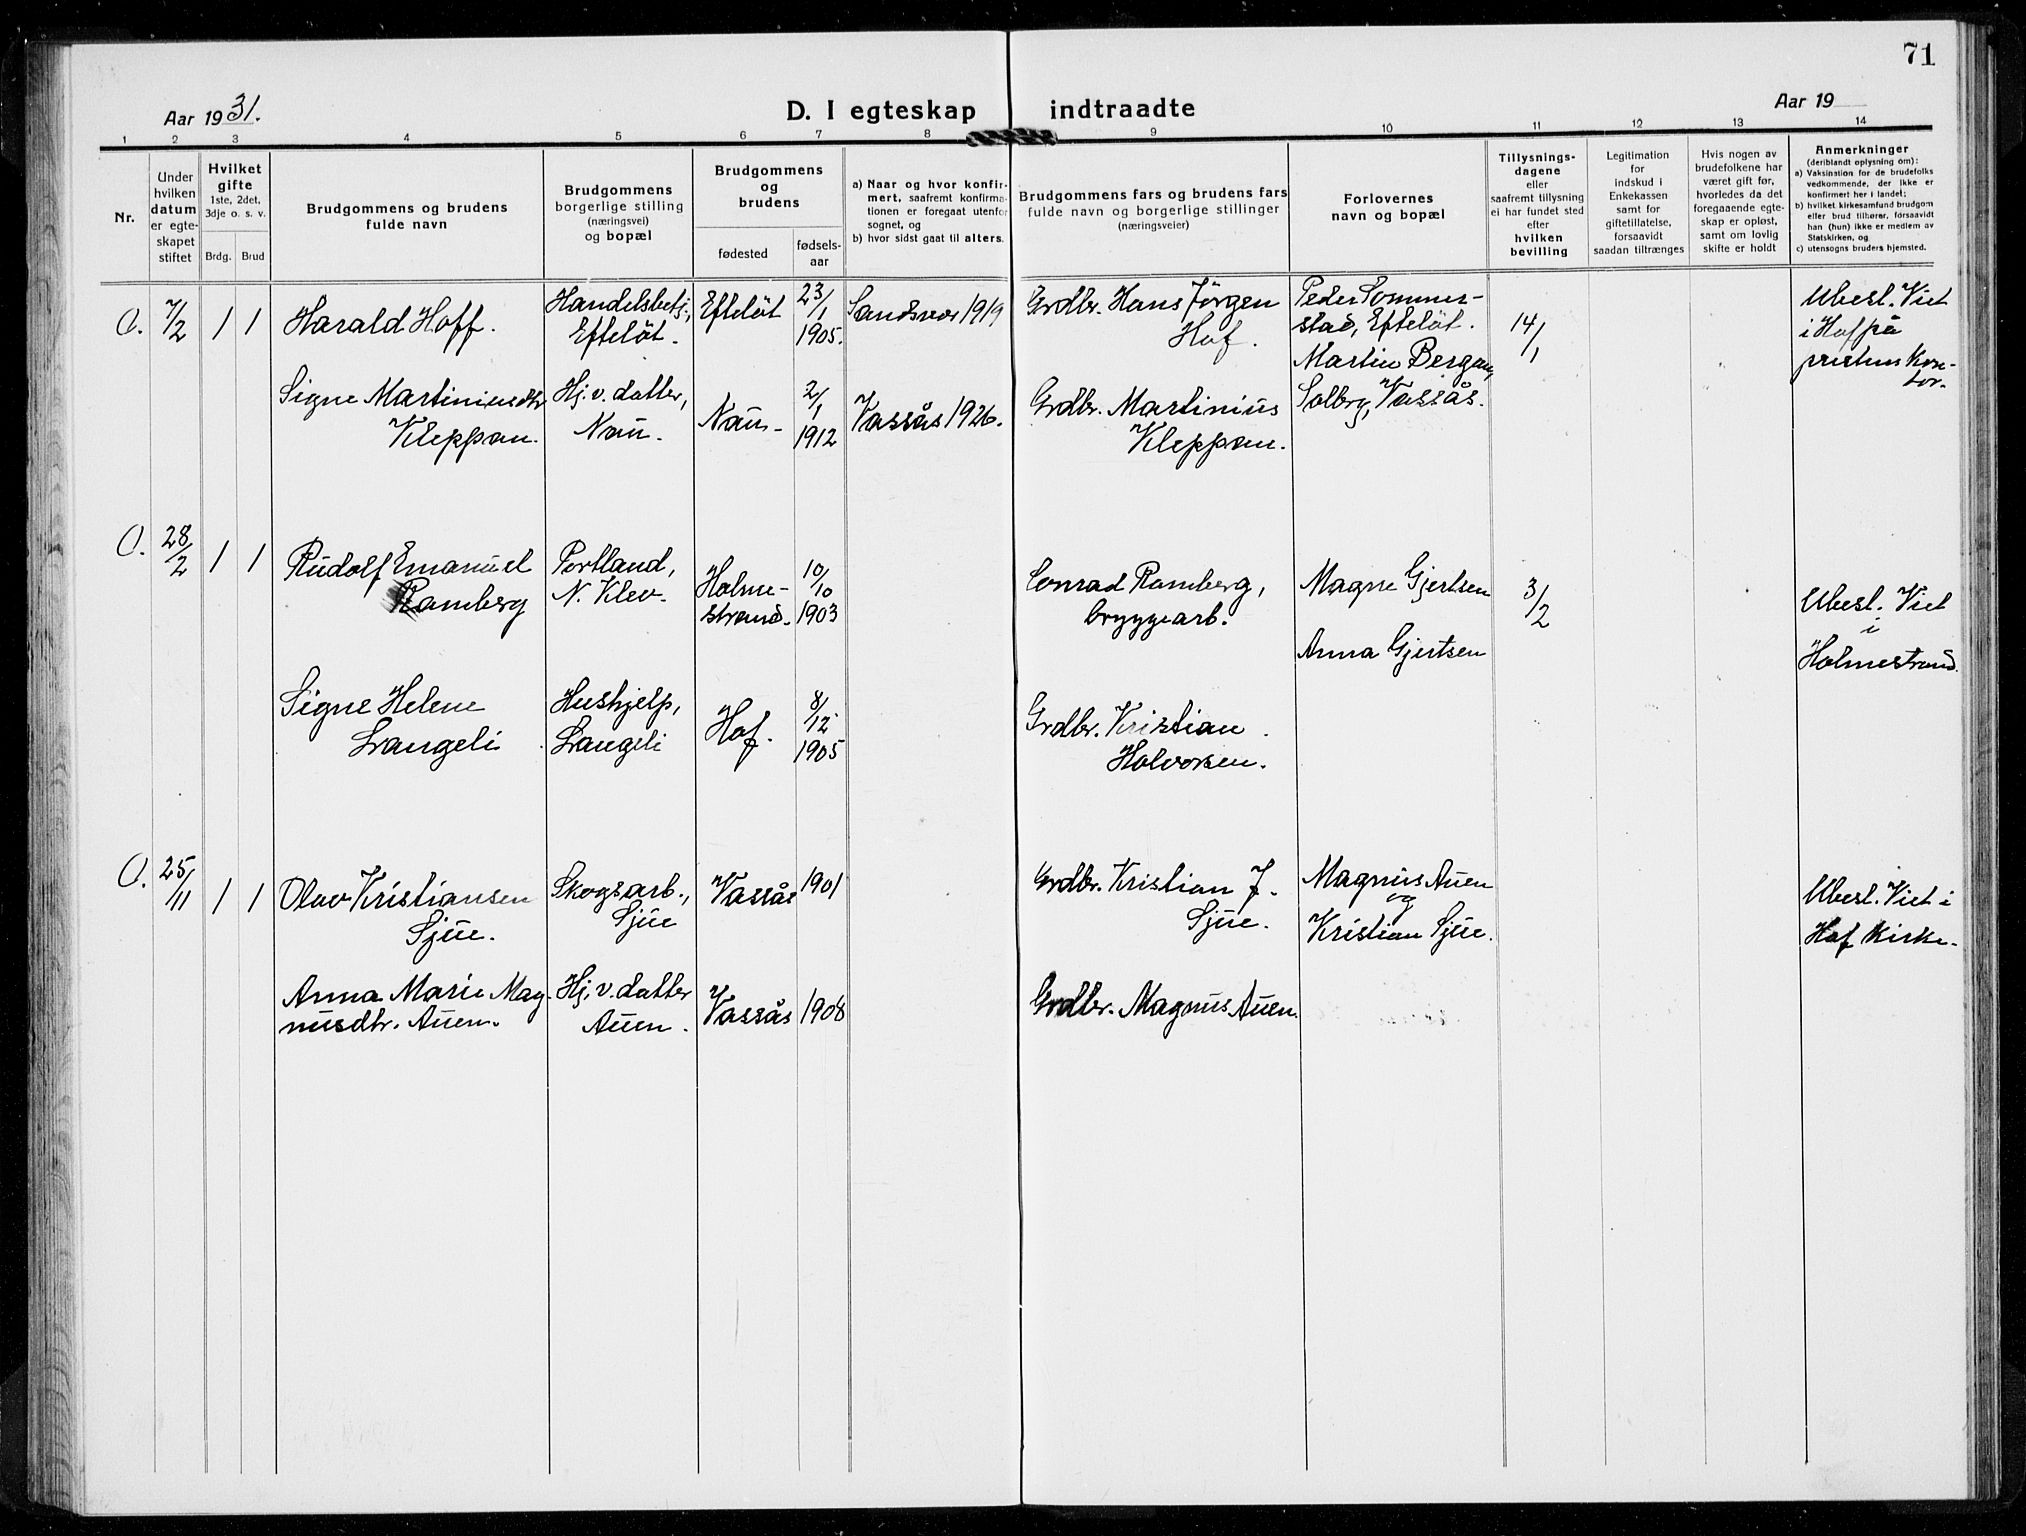 71
Aar 1931.
D. I egteskap indtraadte
Aar 19
1 2 3 4 5 6 7 8 9 10 11 12 13 14
Nr.
Under
hvilken
datum
er egte-
skapet
stiftet
Hvilket
gifte
1ste, 2det,
3dje o. s. v.
Brdg. Brud
Brudgommens og brudens
fulde navn
Brudgommens
borgerlige stilling
(næringsvei)
og bopæl
Brudgommens
og
brudens
fødested
fødsels-
aar
a) Naar og hvor konfir-
mert, saafremt konfirma-
tionen er foregaat utenfor
sognet, og
b) hvor sidst gaat til alters.
Brudgommens fars og brudens fars
fulde navn og borgerlige stillinger
(næringsveier)
Forlovernes
navn og bopæl
Tillysnings-
dagene
eller
saafremt tillysning
ei har fundet sted
efter
hvilken
bevilling
Legitimation
for
indskud i
Enkekassen
samt for
giftetillatelse,
forsaavidt
saadan tiltrænges
Hvis nogen av
brudefolkene har
været gift før,
hvorledes da det
foregaaende egte-
skap er opløst,
samt om lovlig
skifte er holdt
Anmerkninger
(deriblandt oplysning om):
a) Vaksination for de brudefolks
vedkommende, der ikke er
konfirmert her i landet;
b) hvilket kirkesamfund brudgom
eller brud tilhører, forsaavidt
han (hun) ikke er medlem av
Statskirken, og
c) utensogns bruders hjemsted.
O.
7/2
1 1
Harald Hoff.
Handelsbetj.,
Efteløt.
Efteløt
23/1
1905.
Sandsvær 1919
Grdbr. Hans Jörgen
Hof.
Peder Sommer-
stad, Efteløt.
Martin Bergan,
Solberg, Vassås.
14/1
Ubesl. Viet
i Hof på
prestens kon-
tor.
Signe Martiniusdtr
Kleppan.
Hj. v. datter,
Nau.
Nau.
2/1
1912
Vassås 1926.
Grdbr. Martinius
Kleppan.
O.
28/2
1 1
Rudolf Emanuel
Ramberg
Portland,
N. Klev.
Holme-
strand.
10/10
1903
Conrad Ramberg,
bryggearb.
Magne Gjertsen
Anna Gjertsen
3/2
Ubesl. Viet
i
Holmestrand.
Signe Helene
Langeli
Hushjelp,
Langeli
Hof.
8/12
1905
Grdbr. Kristian
Halvorsen.
O.
25/11
1 1
Olav Kristiansen
Sjue.
Skogsarb.,
Sjue
Vassås
1901
Grdbr. Kristian J.
Sjue.
Magnus Auen
og
Kristian Sjue.
Ubesl. Viet i
Hof kirke.
Anna Marie Mag-
nusdtr. Auen.
Hj. v. datter
Auen.
Vassås
1908
Grdbr. Magnus Auen.